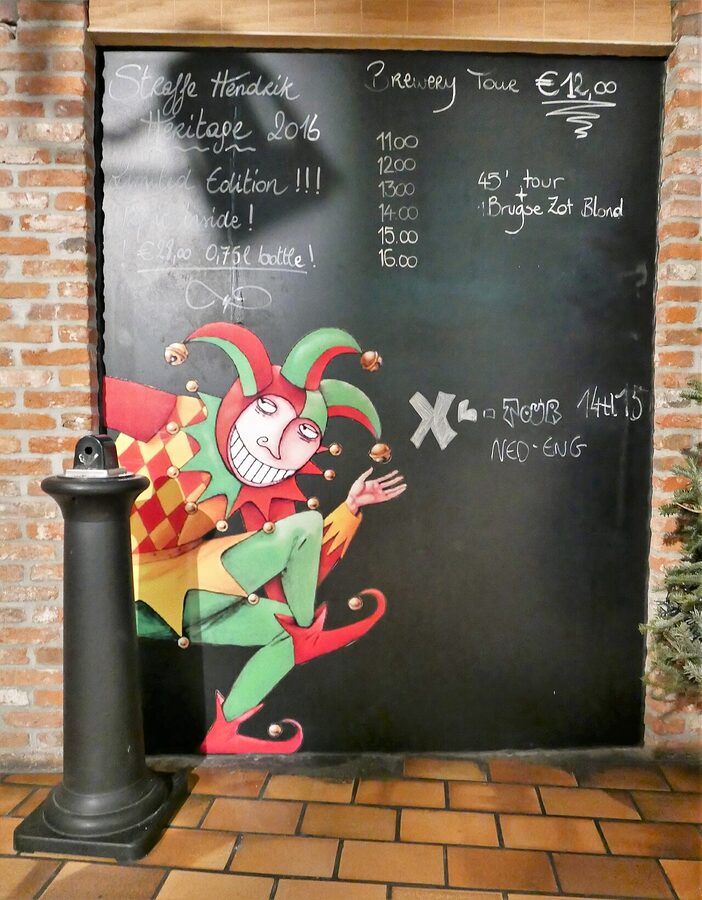 Straffe Hendrik
Heritage 2016
Limited Edition !!!
inside!
0,75l bottle!
Brewery Tour €12,00
1100
1200
1300
14.00
15.00
16.00
45' tour
+
Brugse Zot Blond
XL-TOUR 14u15
NED-ENG